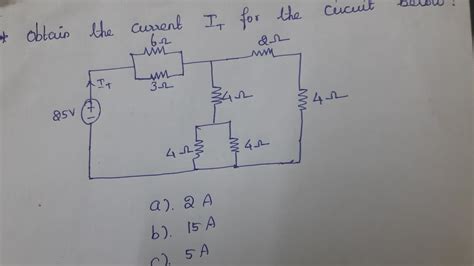 * Obtain the current I_T for the circuit below:
6Ω
2Ω
3Ω
I_T
85V
4Ω
4Ω
4Ω
4Ω
a). 2 A
b). 15 A
c). 5 A